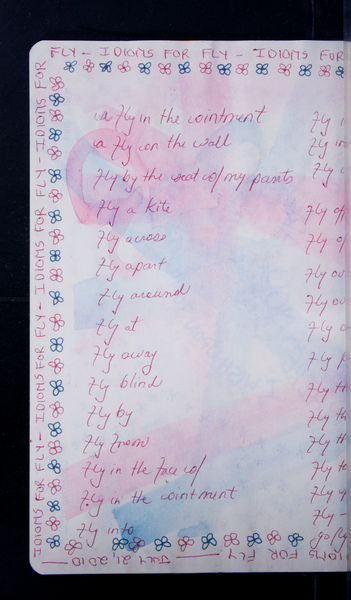 FLY - IDIOMS FOR FLY - IDIOMS FOR
IDIOMS FOR FLY - IDIOMS FOR FLY - IDIOMS FOR FLY - IDIOMS FOR
a fly in the ointment
a fly on the wall
fly by the seat of my pants
fly a kite
fly across
fly apart
fly around
fly at
fly away
fly blind
fly by
fly from
fly in the face of
fly in the ointment
fly into
fly
fly in
fly
fly off
fly
fly
fly
fly
fly
fly
fly
fly
fly to
fly
fly -
go fly
JULY 21, 2010 — IDIOMS FOR FLY